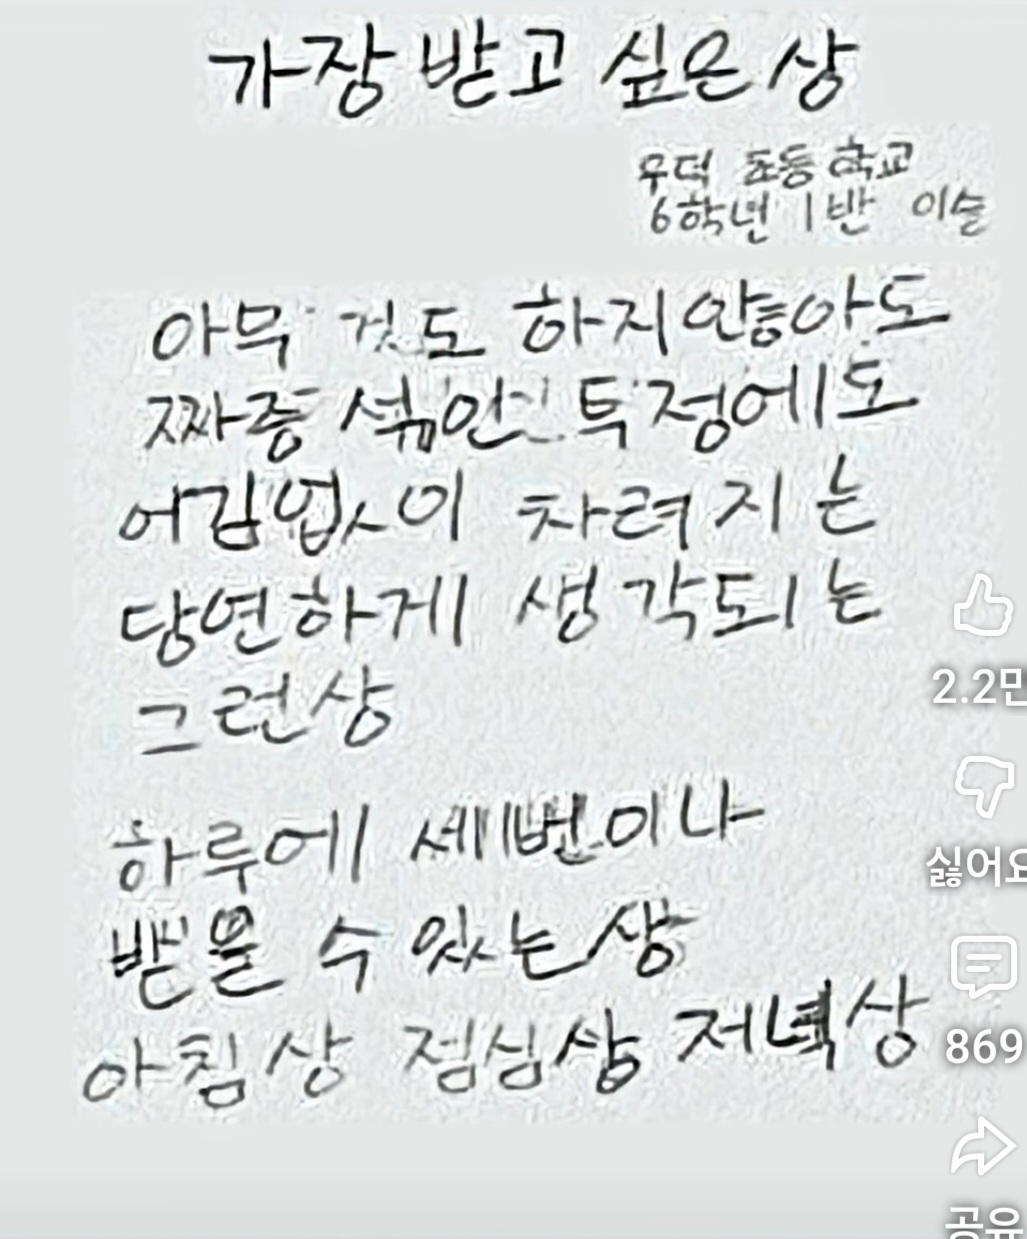 가장 받고 싶은 상
우덕 초등학교
6학년 1반 이슬
아무 것도 하지않아도
짜증 섞인 투정에도
어김없이 차려지는
당연하게 생각되는
그런상
하루에 세번이나
받을 수 있는 상
아침상 점심상 저녁상
2.2만
싫어요
869
공유